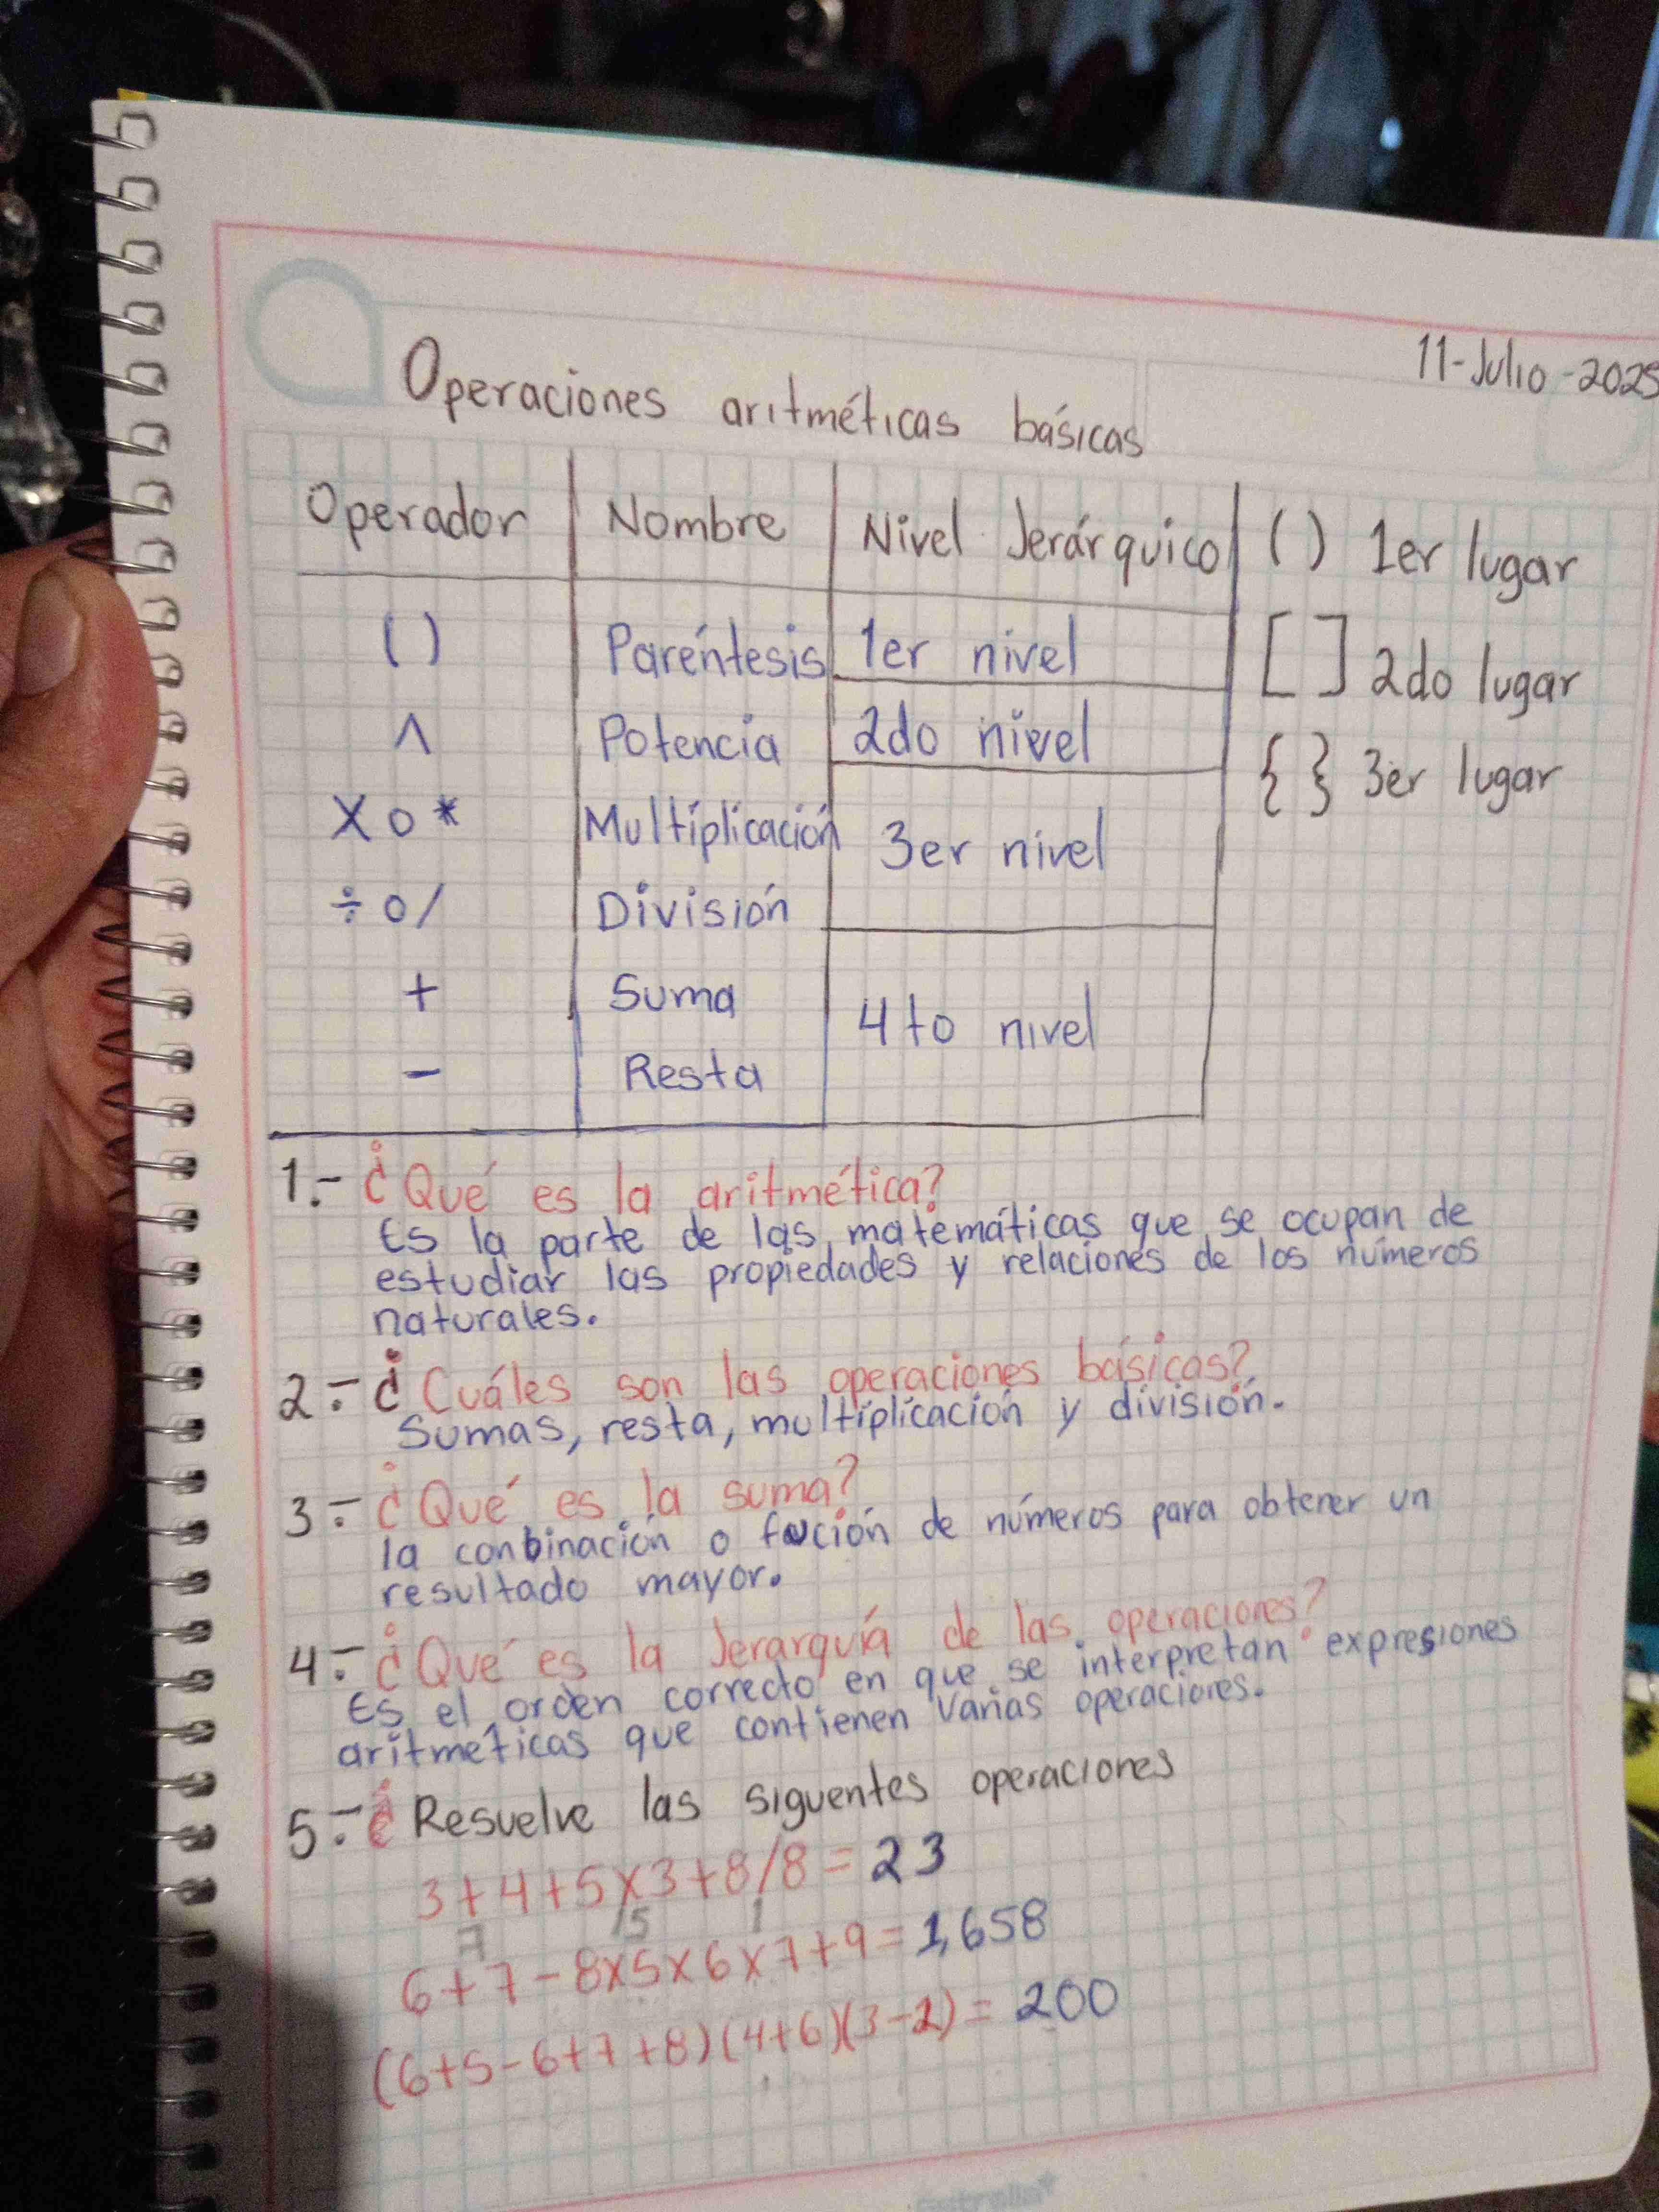 11-Julio-2025
Operaciones aritméticas básicas
Operador Nombre Nivel Jerárquico () 1er lugar
() Paréntesis 1er nivel [ ] 2do lugar
^ Potencia 2do nivel { } 3er lugar
X o * Multiplicación 3er nivel
÷ o / División
+ Suma 4to nivel
- Resta
1.- ¿Qué es la aritmética?
Es la parte de las matemáticas que se ocupan de
estudiar las propiedades y relaciones de los números
naturales.
2.- ¿Cuáles son las operaciones básicas?
Sumas, resta, multiplicación y división.
3.- ¿Qué es la suma?
la conbinación o fución de números para obtener un
resultado mayor.
4.- ¿Qué es la Jerarquía de las operaciones?
Es el orden correcto en que se interpretan expresiones
aritméticas que contienen varias operaciones.
5.- ¿Resuelve las siguentes operaciones
3+4+5x3+8/8=23
7 15 1
6+7-8x5x6x7+9=1,658
(6+5-6+7+8)(4+6)(3-2)=200